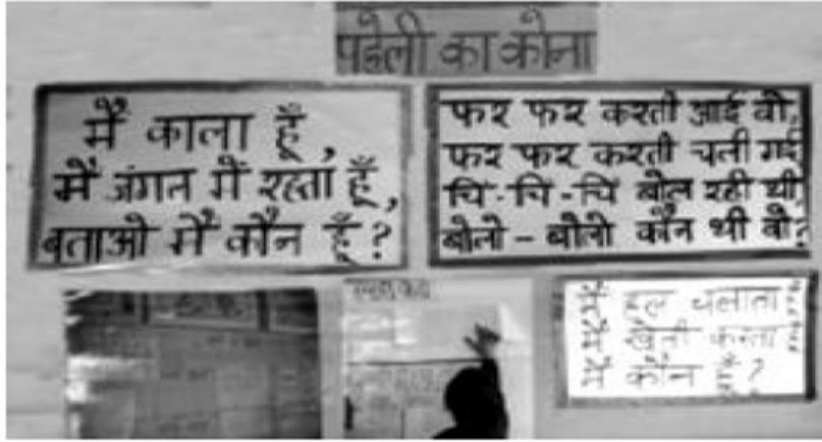 पहेली का कोना
मैं काला हूँ,
मैं जंगल में रहता हूँ,
बताओ मैं कौन हूँ?
फर फर करती आई वो,
फर फर करती चली गई
चि-चि-चि बोल रही थी
बोलो-बोलो कौन थी वो?
मैं हल चलाता
मैं खेती करता
मैं कौन हूँ?